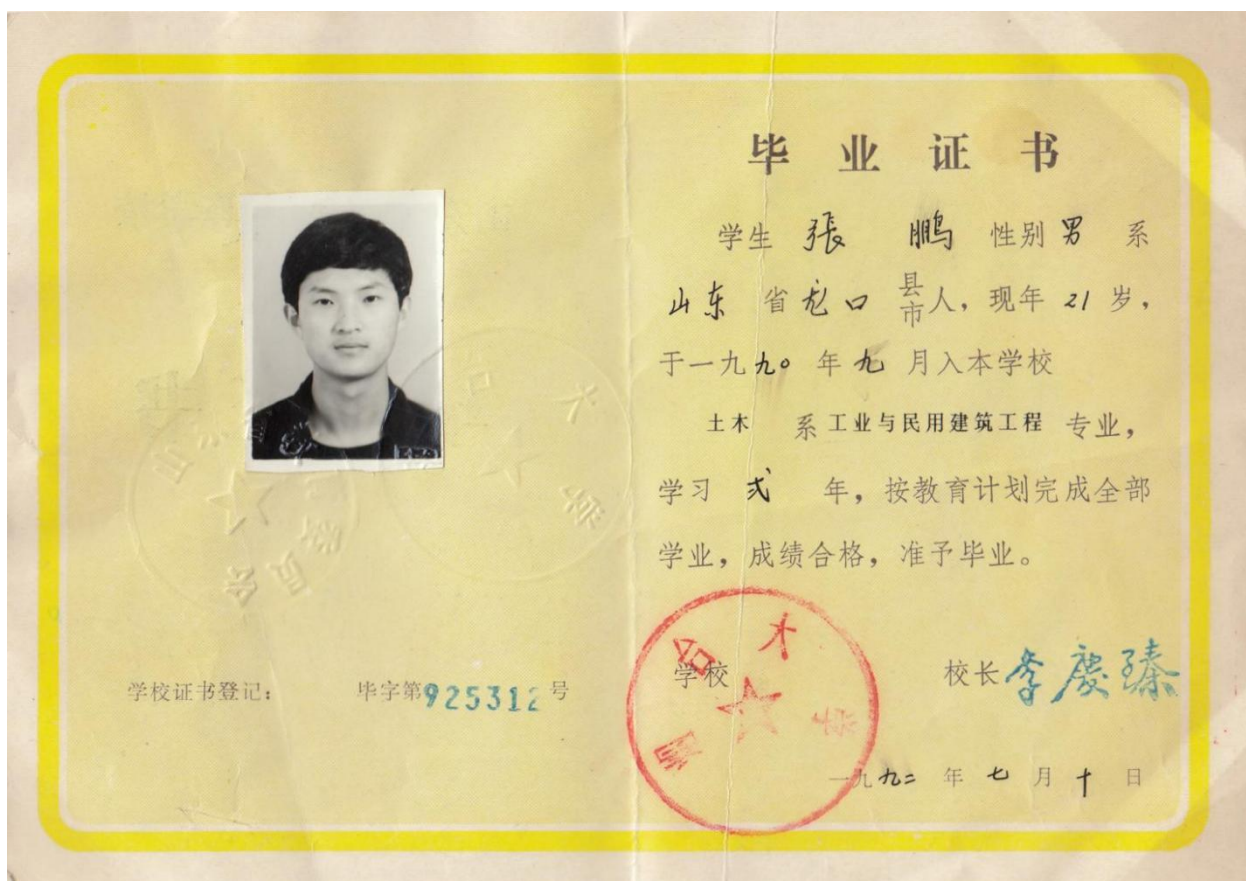 毕业证书
学生 張 鹏 性别 男 系
山东 省 龙口 县市人，现年 21 岁，
于一九九〇年九月入本学校
土木 系 工业与民用建筑工程 专业，
学习 弍 年，按教育计划完成全部
学业，成绩合格，准予毕业。
学校 校长 李慶臻
一九九二年七月十日
学校证书登记： 毕字第925312号
烟台大学